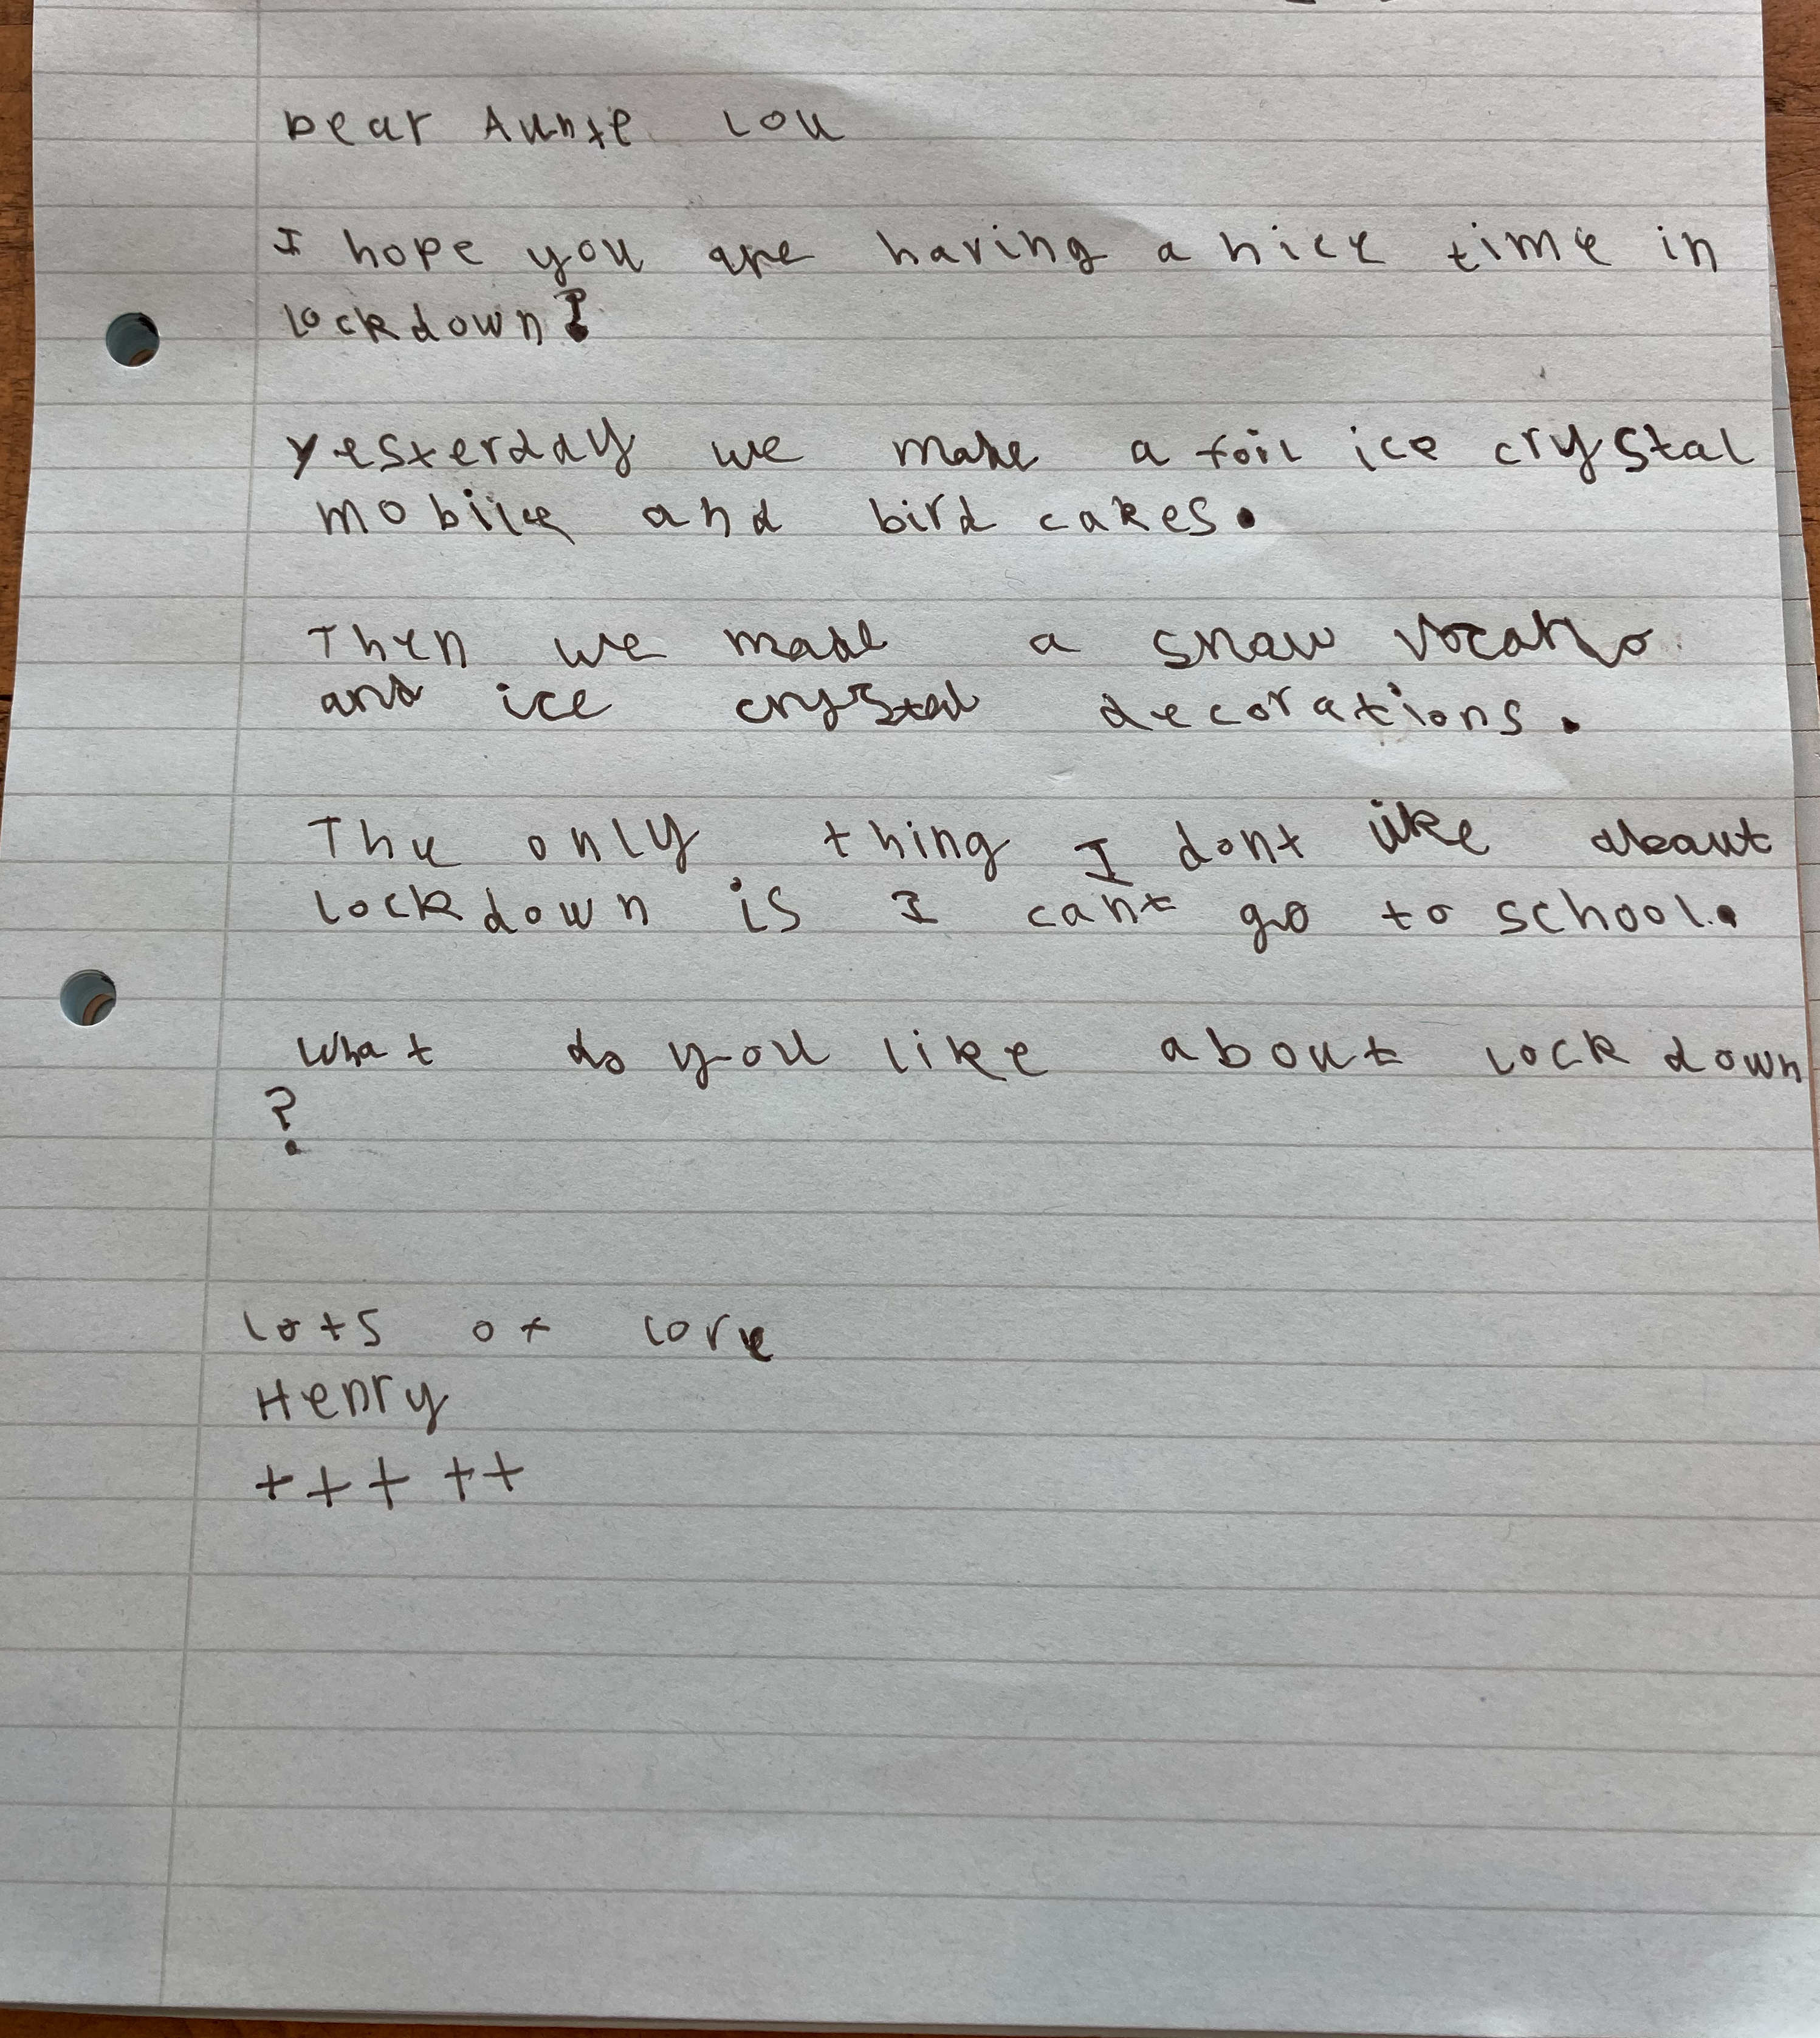 Dear Aunte Lou
I hope you are having a nice time in
lockdown?
Yesterday we made a foil ice crystal
mobile and bird cakes.
Then we made a snow vocano
and ice crystal decorations.
The only thing I dont like about
lockdown is I cant go to school.
What do you like about lockdown
?
lots of love
Henry
+++ ++